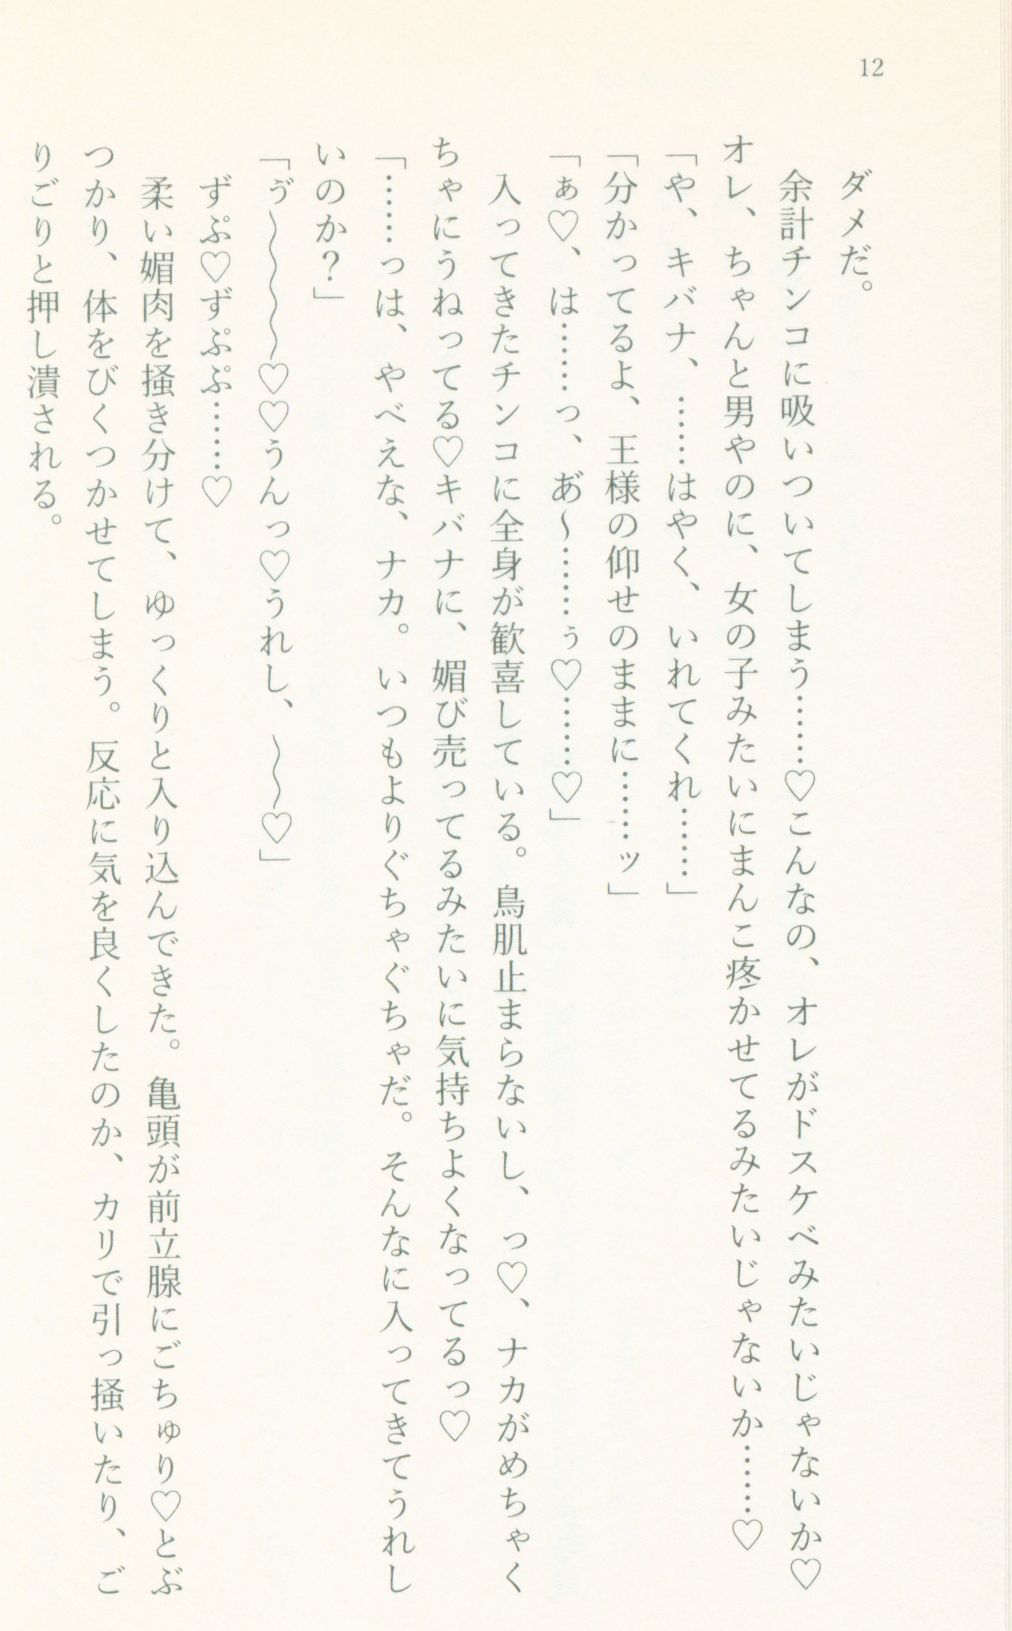 12
ダメだ。
余計チンコに吸いついてしまう……♡こんなの、オレがドスケベみたいじゃないか♡
オレ、ちゃんと男やのに、女の子みたいにまんこ疼かせてるみたいじゃないか……♡
「や、キバナ、……はやく、いれてくれ……」
「分かってるよ、王様の仰せのままに……ッ」
「ぁ♡、は……っ、あ゙～……ぅ♡……♡」
入ってきたチンコに全身が歓喜している。鳥肌止まらないし、っ♡、ナカがめちゃく
ちゃにうねってる♡キバナに、媚び売ってるみたいに気持ちよくなってるっ♡
「……っは、やべえな、ナカ。いつもよりぐちゃぐちゃだ。そんなに入ってきてうれし
いのか？」
「ゔ～～～～♡♡うんっ♡うれし、～～♡」
ずぷ♡ずぷぷ……♡
柔い媚肉を掻き分けて、ゆっくりと入り込んできた。亀頭が前立腺にごちゅり♡とぶ
つかり、体をびくつかせてしまう。反応に気を良くしたのか、カリで引っ掻いたり、ご
りごりと押し潰される。